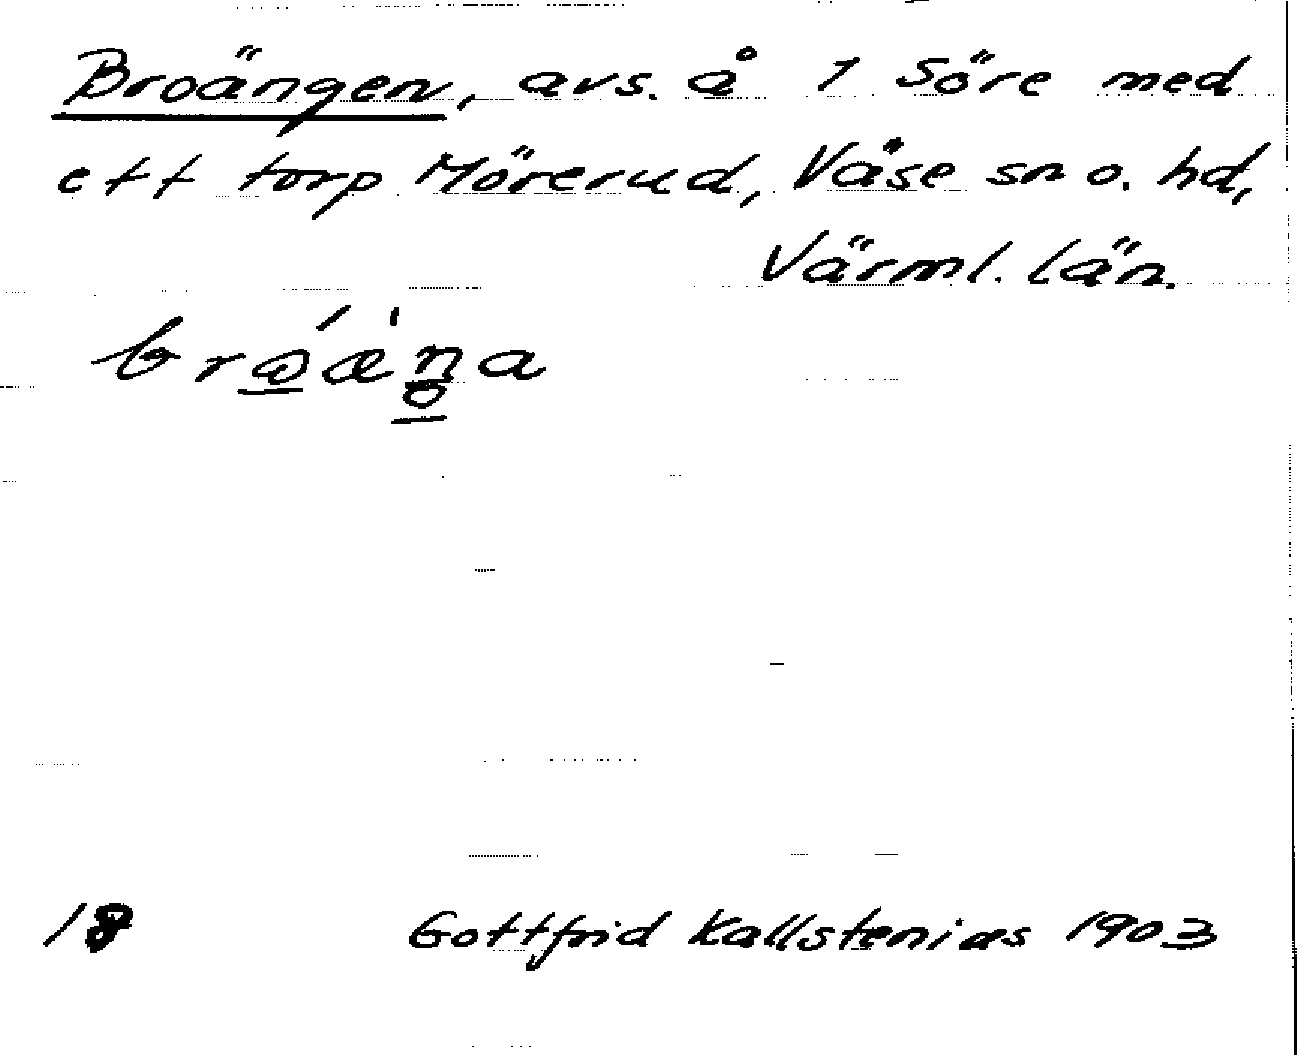 Broängen, avs. å 1 Söre med
ett torp Mörerud, Väse sn o. hd,
Värml. län.
18 Gottfrid Kallstenius 1903